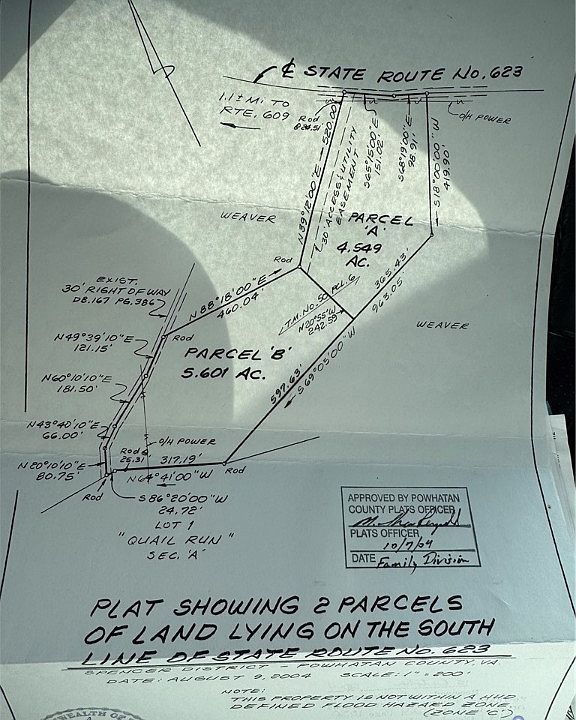 ℄ STATE ROUTE No. 623
1.1± MI. TO
RTE. 609
Rod
O/H POWER
N39°12'00"E — 520.00'
30' ACCESS & UTILITY
EASEMENT
S65°15'00"E
151.02'
S68°19'00"E
98.91'
S18°00'00"W
419.90'
WEAVER
PARCEL
'A'
4.549
AC.
Rod
EXIST.
30' RIGHT OF WAY
DB.167 PG.386
N88°18'00"E
460.04'
T.M. No. 50 PCL. 6
N20°55'W
242.59'
365.43'
963.05
WEAVER
N49°39'10"E
121.15'
Rod
PARCEL 'B'
5.601 AC.
N60°10'10"E
181.50'
597.63'
S69°05'00"W
N43°40'10"E
66.00'
O/H POWER
Rod @
25.31
317.19'
N64°41'00"W
Rod
N20°10'10"E
80.75'
Rod
S86°20'00"W
24.72'
LOT 1
"QUAIL RUN"
SEC. 'A'
APPROVED BY POWHATAN
COUNTY PLATS OFFICER
PLATS OFFICER
10/7/04
DATE Family Division
PLAT SHOWING 2 PARCELS
OF LAND LYING ON THE SOUTH
LINE OF STATE ROUTE No. 623
SPENCER DISTRICT - POWHATAN COUNTY, VA.
DATE: AUGUST 9, 2004 SCALE: 1" = 200'
NOTE:
THIS PROPERTY IS NOT WITHIN A HUD
DEFINED FLOOD HAZARD ZONE.
(ZONE "C")